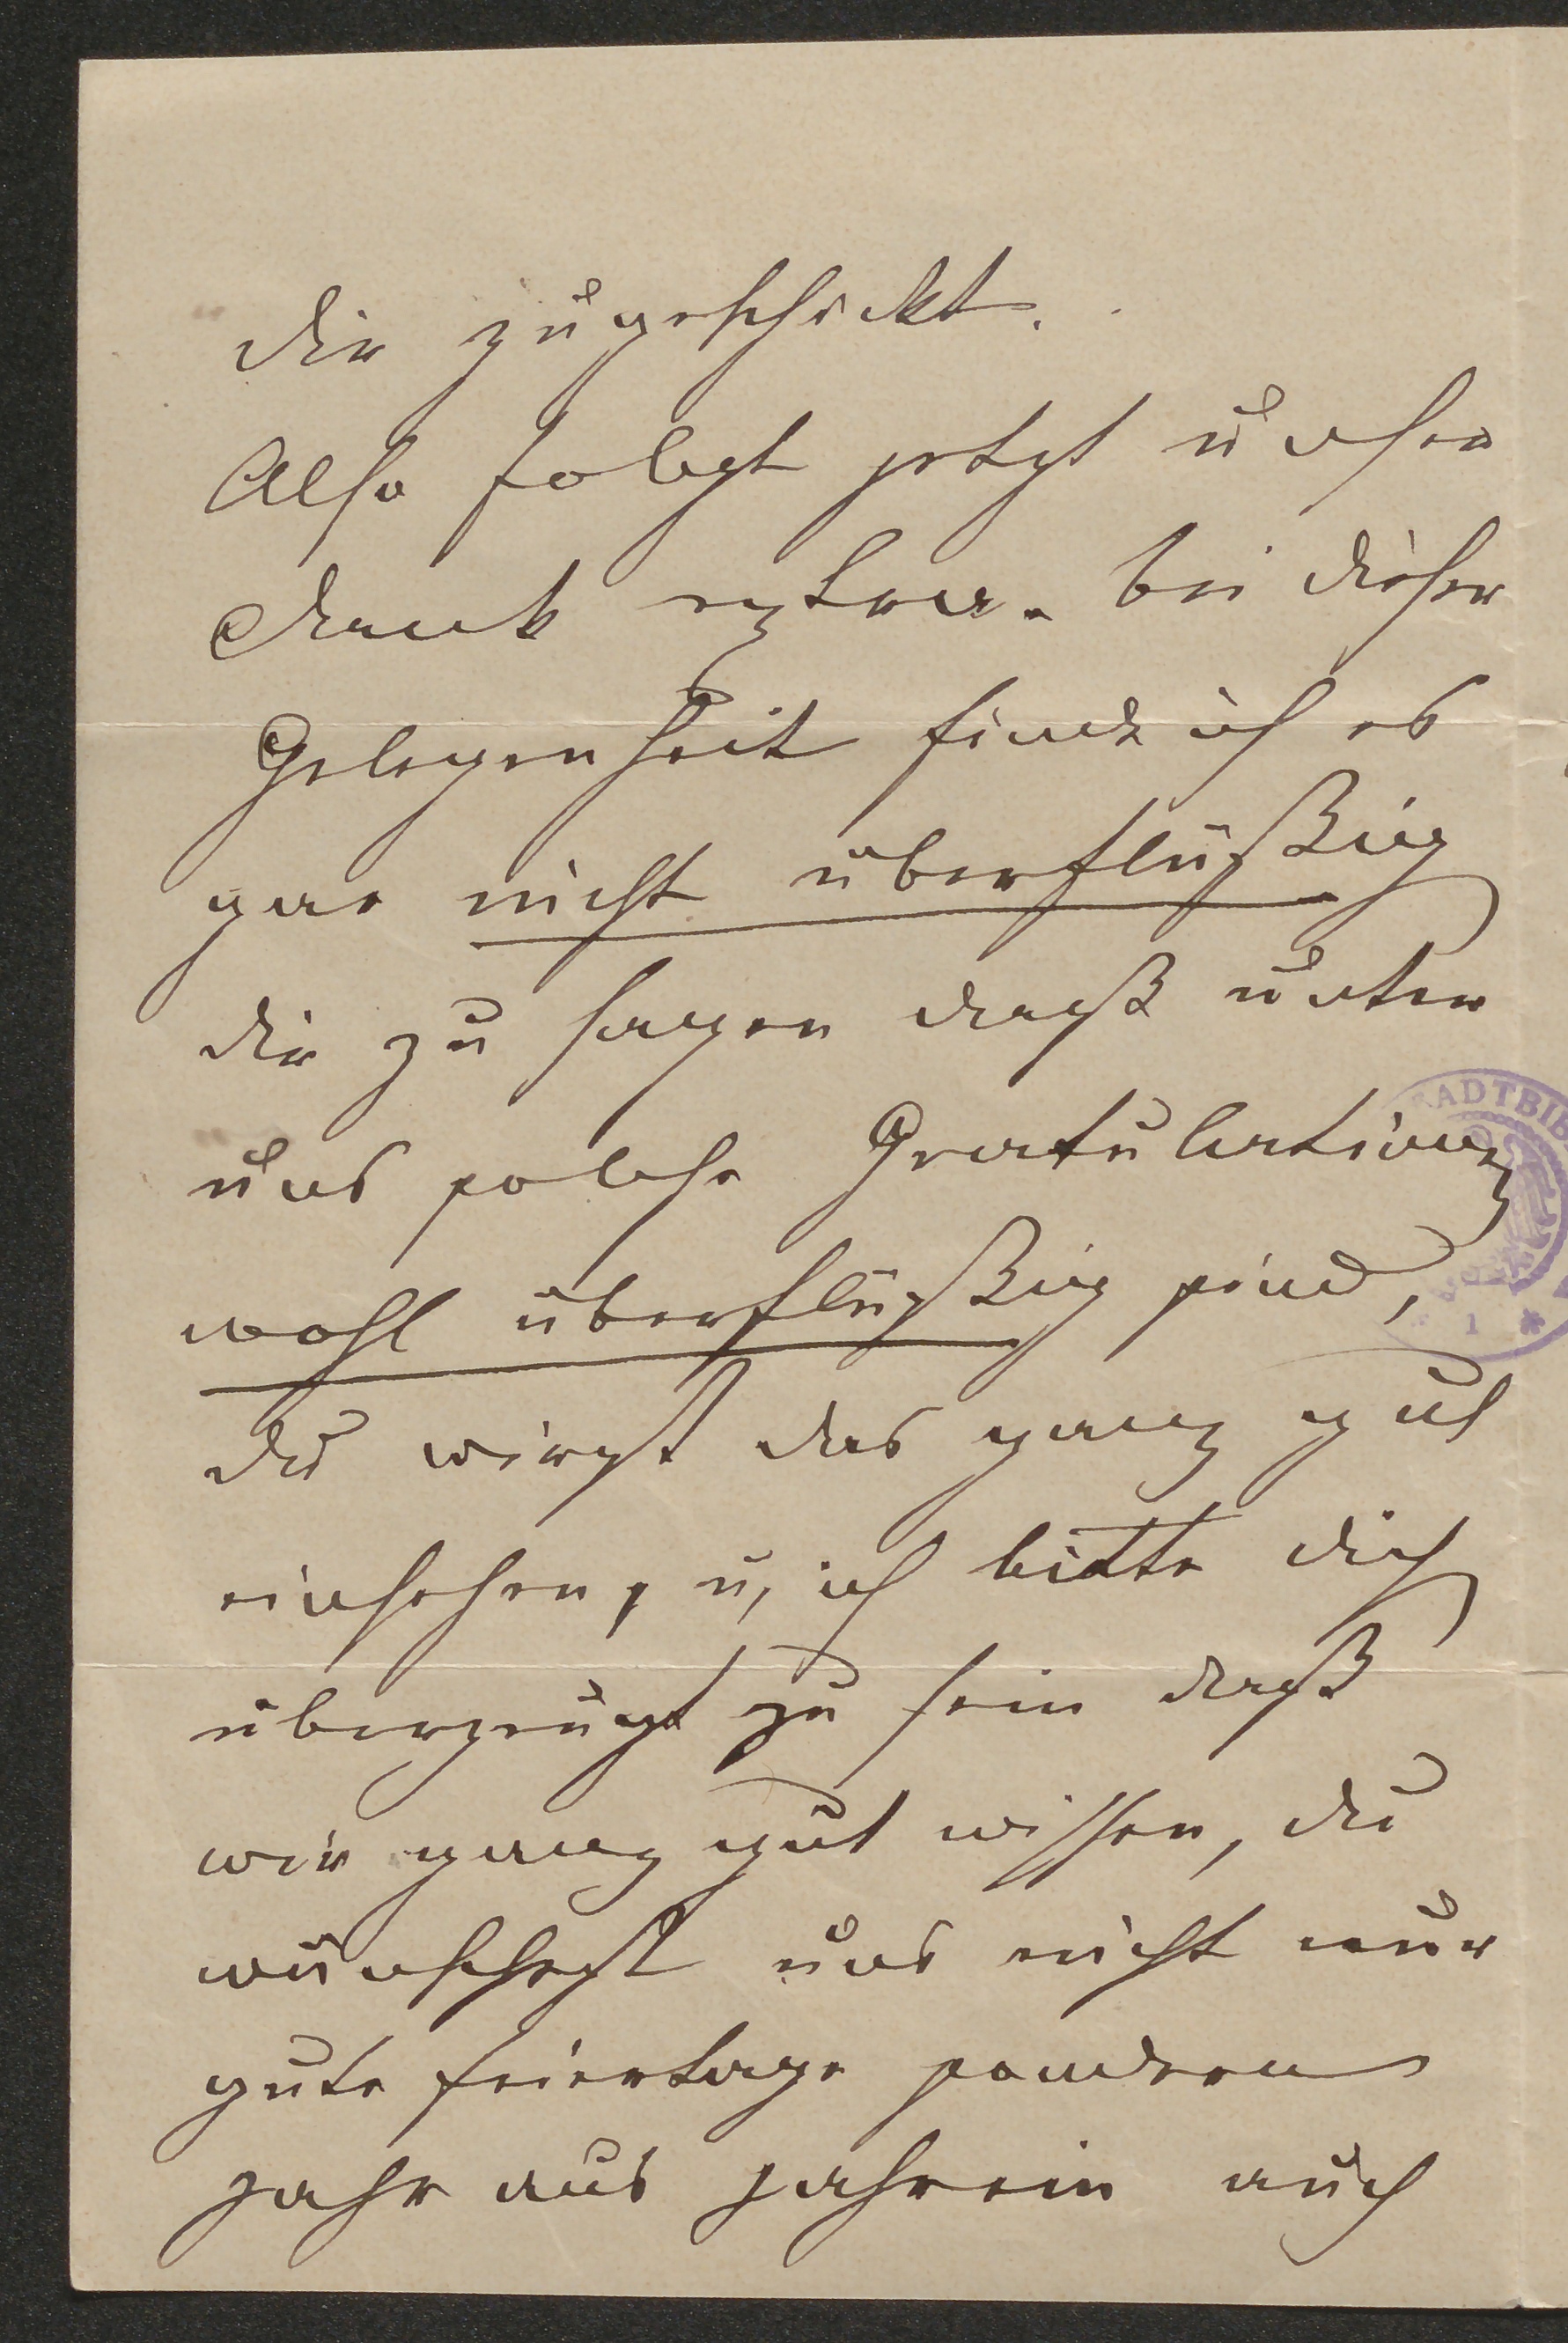 dir zugeschickt.
Also folgt jetzt unser
Dank extra. bei dieser
Gelegenheit finde ich es
gar nicht überflüßig
dir zu sagen daß unter
uns solche Gratulationen
wohl überflüßig sind,
du wirst das ganz gut
einsehen, u, ich bitte dich
überzeugt zu sein daß
wir ganz gut wissen, du
wünschest uns nicht nur
gute feiertage sondern
jahr aus jahrein auch
ADTBIB
1 *